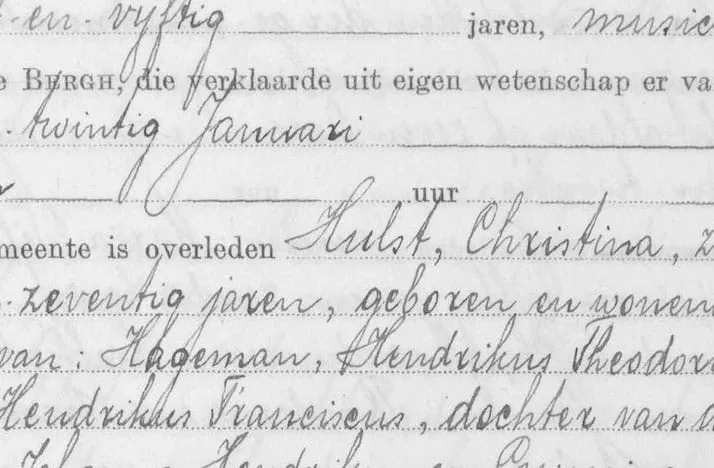 en vyftig jaren, music
BERGH, die verklaarde uit eigen wetenschap er va
twintig Januari
uur
meente is overleden Hulst, Christina, z
zeventig jaren, geboren en wonen
van: Hageman, Hendrikus Theodor
Hendrikus Franciscus, dochter van d
Hendrikus en